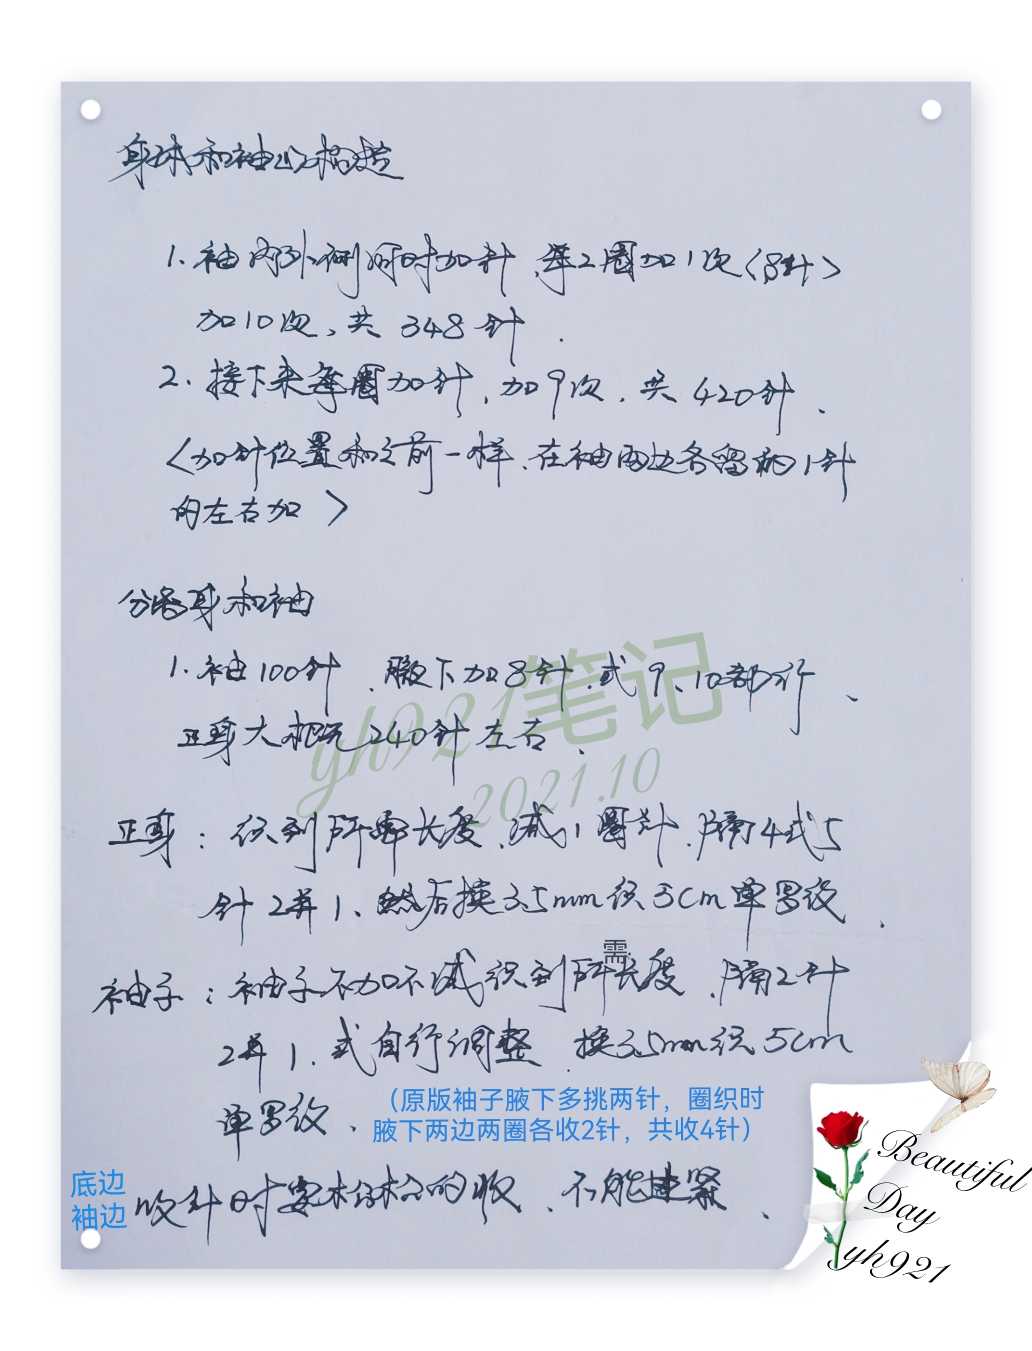 1. 袖内外侧同时加针、每2圈加1次〈8针〉
加10次、共 348 针.
2. 接下来每圈加针、加9次. 共 420针.
〈加针位置和之前一样、在袖两边各留的1针
的左右加 〉
分 身和袖
1. 袖100针 . 腋下加8针. 或 9、10都行、
正身大概 240针左右、
正身：织到所需长度、减1圈针. 隔4或5
针2并1、然后换3.5mm织5cm单罗纹.
需
袖子：袖子不加不减织到所长度、隔2针
2并1. 或自行调整 换3.5mm织5cm
单罗纹.
（原版袖子腋下多挑两针，圈织时
腋下两边两圈各收2针，共收4针）
底边
袖边
收针时要松松的收、不能 紧、
yh921笔记
2021.10
Beautiful
Day
yh921